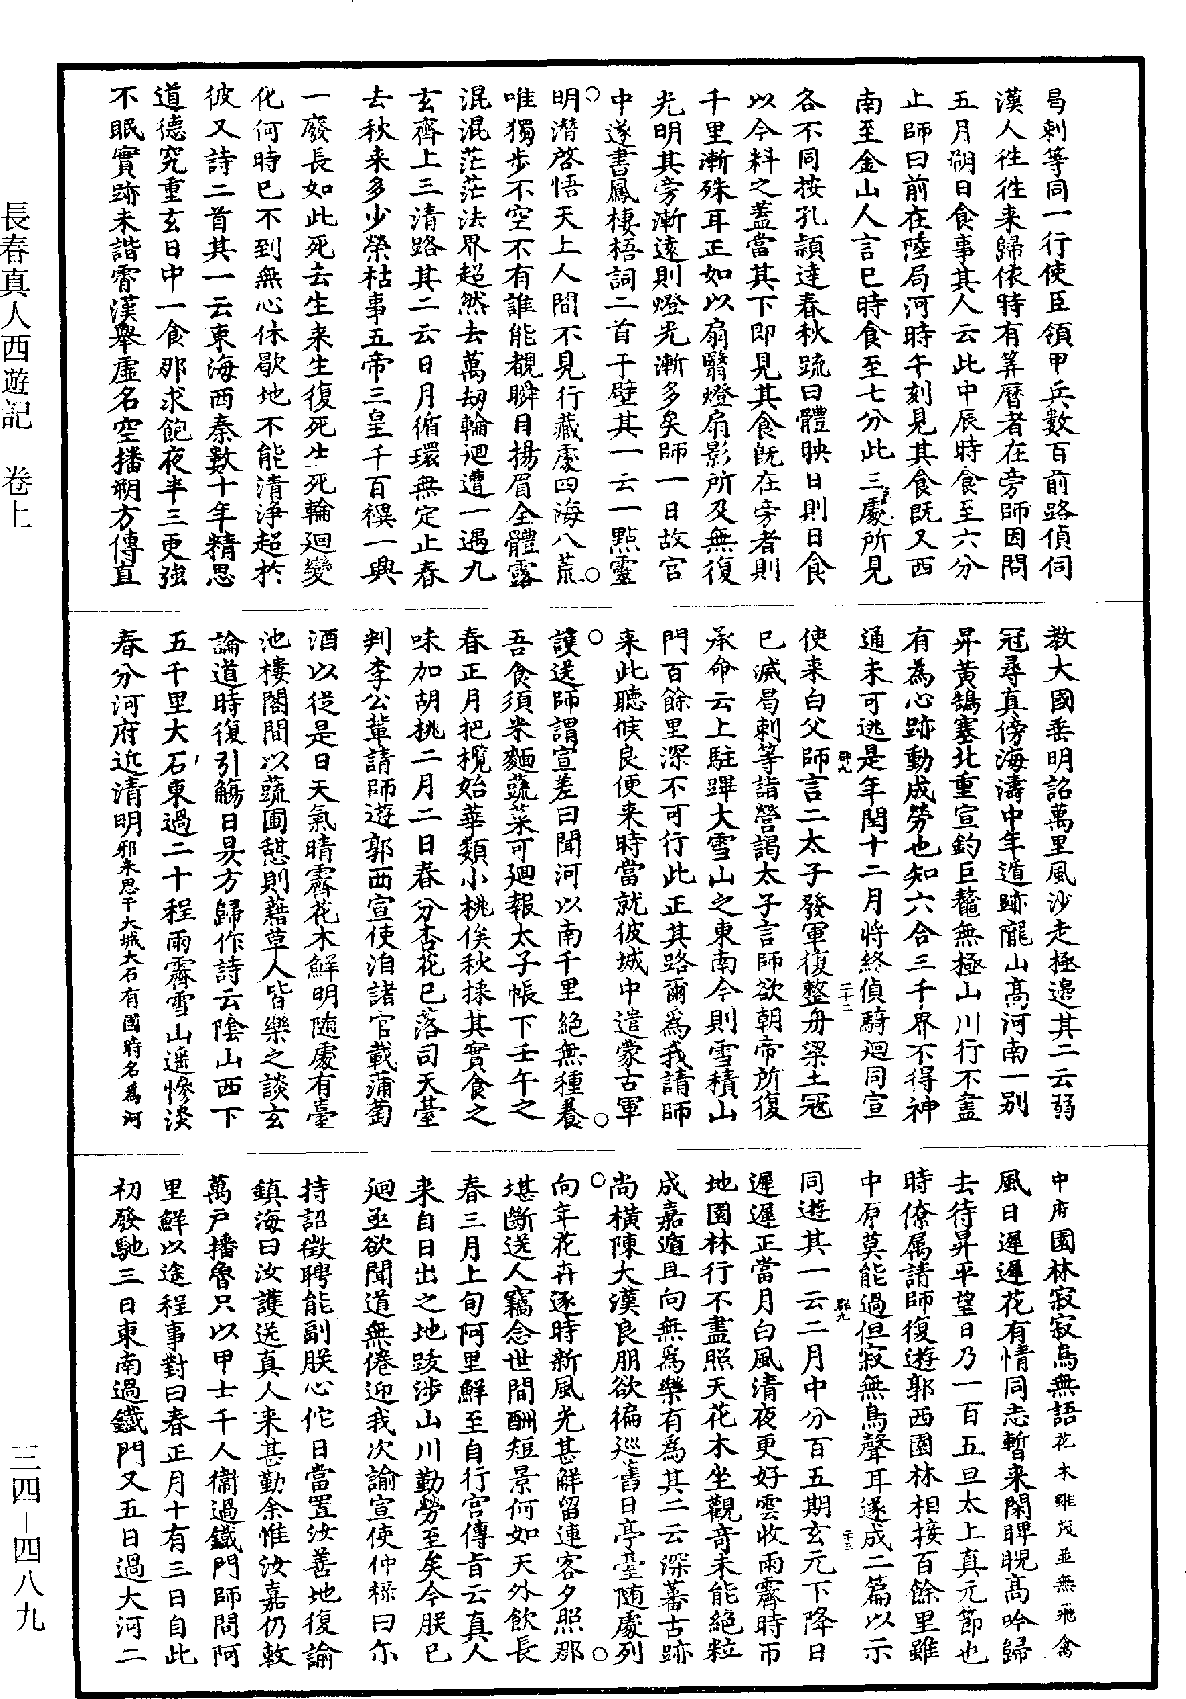 曷剌等同一行使臣領甲兵數百前路偵伺
漢人往往来歸依時有筭曆者在旁師因問
五月朔日食事其人云此中辰時食至六分
止師曰前在陸局河時午刻見其食既又西
南至金山人言巳時食至七分此三處所見
各不同按孔頴達春秋䟽曰體映日則日食
以今料之蓋當其下即見其食既在旁者則
千里漸殊耳正如以扇翳燈扇影所及無復
光明其旁漸逺則燈光漸多矣師一日故宫
中遂書鳳棲梧詞二首于壁其一云一點靈
明潜啓悟天上人間不見行藏處四海八荒
唯獨步不空不有誰能覩瞬目揚眉全體露
混混茫茫法界超然去萬劫輪廻遭一遇九
玄齊上三清路其二云日月循環無定止春
去秋来多少榮枯事五帝三皇千百禩一興
一廢長如此死去生来生復死生死輪廻變
化何時已不到無心休歇地不能清淨超於
彼又詩二首其一云東海西秦數十年精思
道德究重玄日中一食那求飽夜半三更強
不眠實跡未諧霄漢舉虛名空播朔方傳直
教大國垂明詔萬里風沙走極邉其二云弱
冠尋真傍海濤中年遁跡隴山髙河南一别
昇黄鵠塞北重宣釣巨鼇無極山川行不盡
有為心跡動成勞也知六合三千界不得神
通未可逃是年閏十二月將終偵騎廻同宣
使来白父師言二太子發軍復整舟梁土冦
已滅曷剌等詣營謁太子言師欲朝帝所復
承命云上駐蹕大雪山之東南今則雪積山
門百餘里深不可行此正其路爾為我請師
来此聽候良便来時當就彼城中遣蒙古軍
護送師謂宣差曰聞河以南千里絶無種養
吾食須米麵蔬菜可廻報太子帳下壬午之
春正月杷欖始華類小桃俟秋採其實食之
味加胡桃二月二日春分杏花已落司天䑓
判李公輩請師遊郭西宣使洎諸官載蒲萄
酒以從是日天氣晴霽花木鮮明随處有臺
池樓閣間以蔬圃憇則藉草人皆樂之談玄
論道時復引觴日昃方歸作詩云陰山西下
五千里大石東過二十程雨霽雪山遥慘淡
春分河府近清明邪米思干大城大石有國時名為河
中府園林寂寂鳥無語花木雖茂並無飛禽
風日遲遲花有情同志暫来閑睥睨髙吟歸
去待昇平望日乃一百五旦太上真元節也
時僚属請師復遊郭西園林相接百餘里雖
中原莫能過但寂無鳥聲耳遂成二篇以示
同遊其一云二月中分百五期玄元下降日
遲遲正當月白風清夜更好雲收雨霽時帀
地園林行不盡照天花木坐觀奇未能絶粒
成嘉遁且向無為樂有為其二云深蕃古跡
尚横陳大漢良朋欲徧巡舊日亭臺随處列
向年花卉逐時新風光甚解留連客夕照那
堪斷送人竊念世間酬短景何如天外飲長
春三月上旬阿里鮮至自行宫傳㫖云真人
来自日出之地跋涉山川勤勞至矣今朕已
廻亟欲聞道無倦迎我次諭宣使仲禄曰尓
持詔徴聘能副朕心佗日當置汝善地復諭
鎮海曰汝護送真人来甚勤余惟汝嘉仍敕
萬戸播魯只以甲士千人衛過鐵門師問阿
里鮮以途程事對曰春正月十有三日自此
初發馳三日東南過鐵門又五日過大河二
長春真人西遊記　卷上
三四－四八九